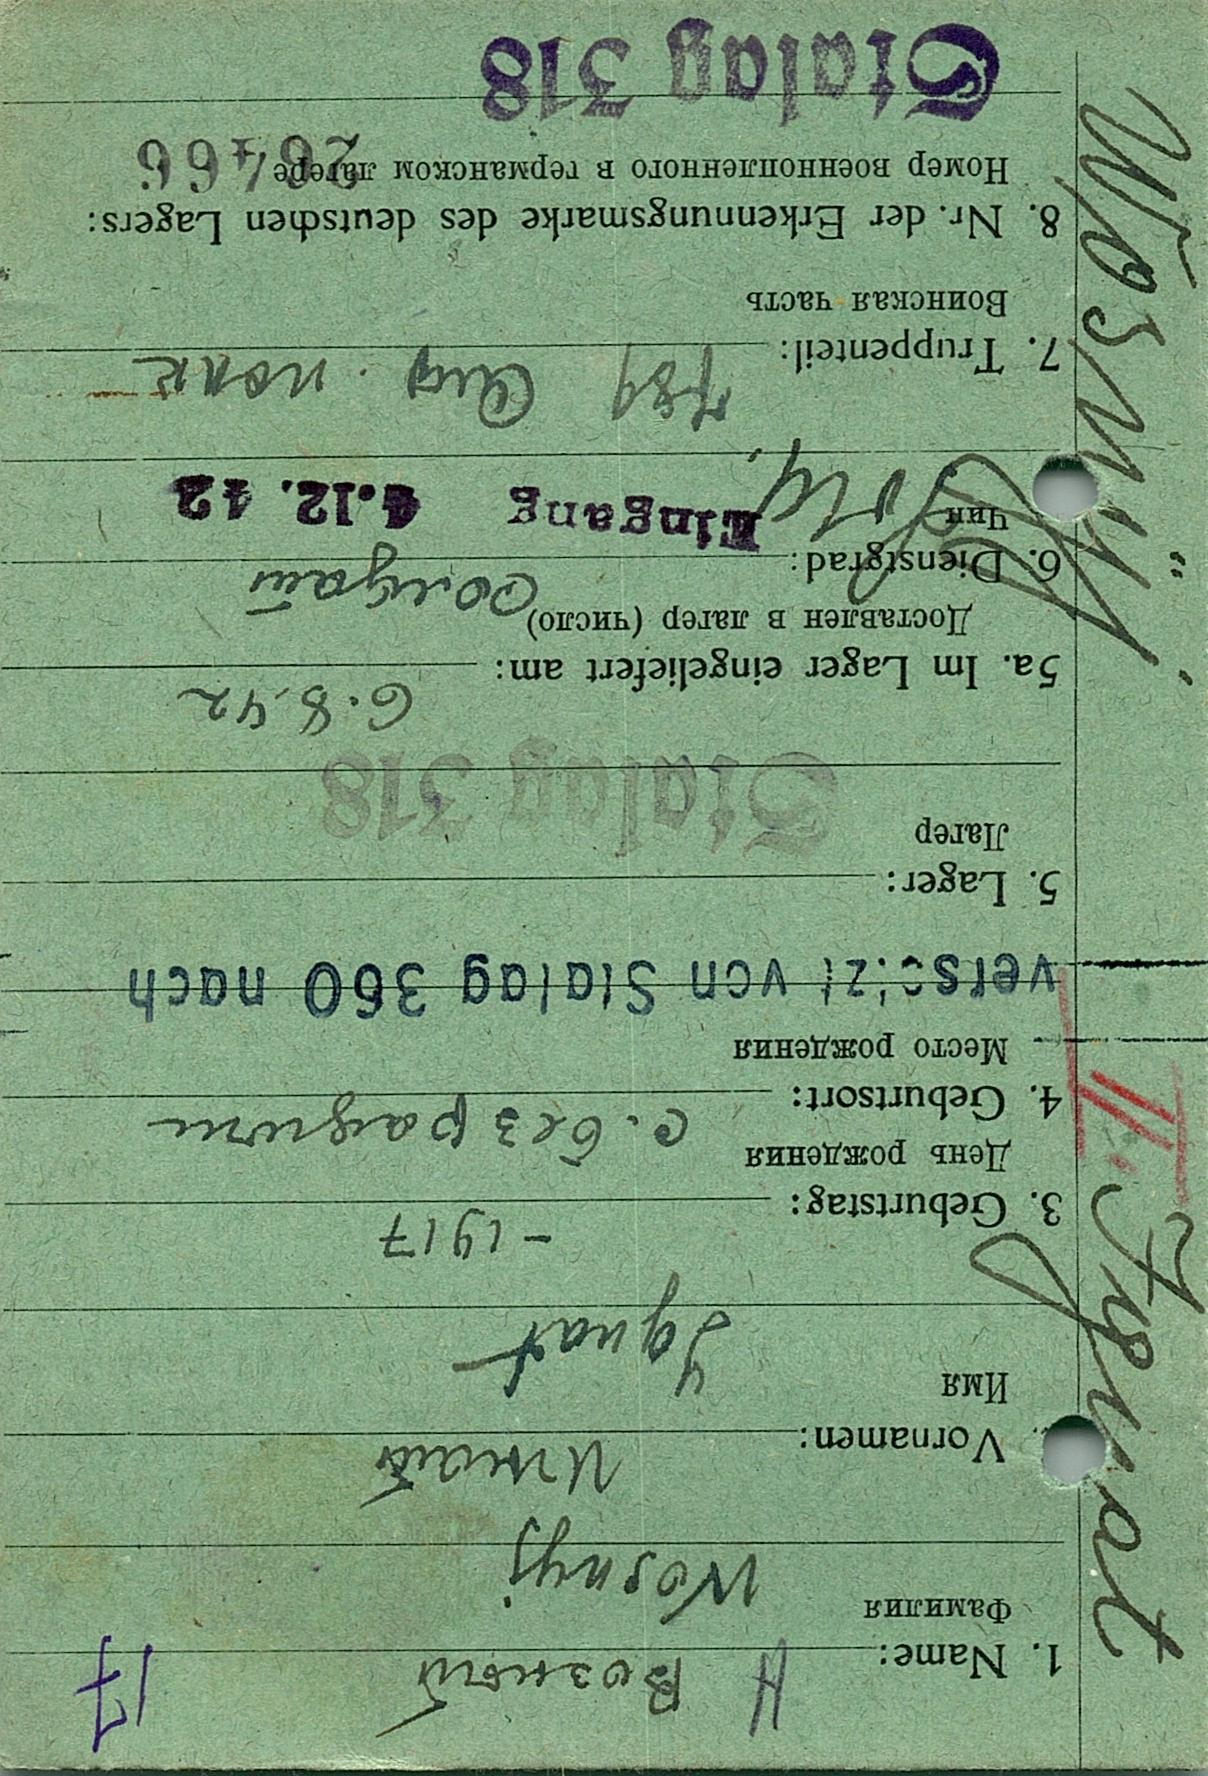 17
H Возный
1. Name:
Фамилия
Wosnyj
Игнат
Vornamen:
Имя
Ignat
- 1917
3. Geburtstag:
День рождения
4. Geburtsort:
Место рождения
versetzt von Stalag 360 nach
5. Lager:
Лагер
Stalag 318
6.8.42
5a. Im Lager eingeliefert am:
Доставлен в лагер (число)
солдат
6. Dienstgrad:
Чин
Eingang 4.12.42
полк
7. Truppenteil:
Воинская часть
8. Nr. der Erkennungsmarke des deutschen Lagers:
Номер военнопленного в германском лагере
26466
Stalag 318
Wosnyj
II. Ignat